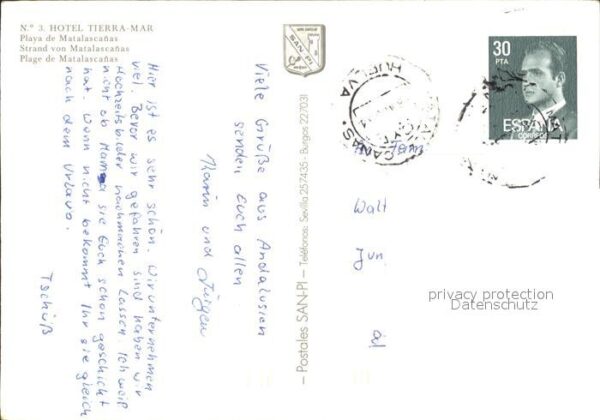 N.º 3. HOTEL TIERRA-MAR
Playa de Matalascañas
Strand von Matalascañas
Plage de Matalascañas
Hier ist es sehr schön. Wir unternehmen
viel. Bevor wir gefahren sind haben wir
Hochzeitsbilder nachmachen lassen. Ich weiß
nicht ob Mama sie Euch schon geschickt
hat. Wenn nicht bekommt Ihr sie gleich
nach dem Urlaub.
Tschüß
Viele Grüße aus Andalusien
senden Euch allen
Karin und Jürgen
SAN-PI
— Postales SAN-PI — Teléfonos: Sevilla 257435 - Burgos 227031
HUELVA
30
PTA
ESPAÑA
CORREOS
Fam
Walt
Jun.
privacy protection
Datenschutz